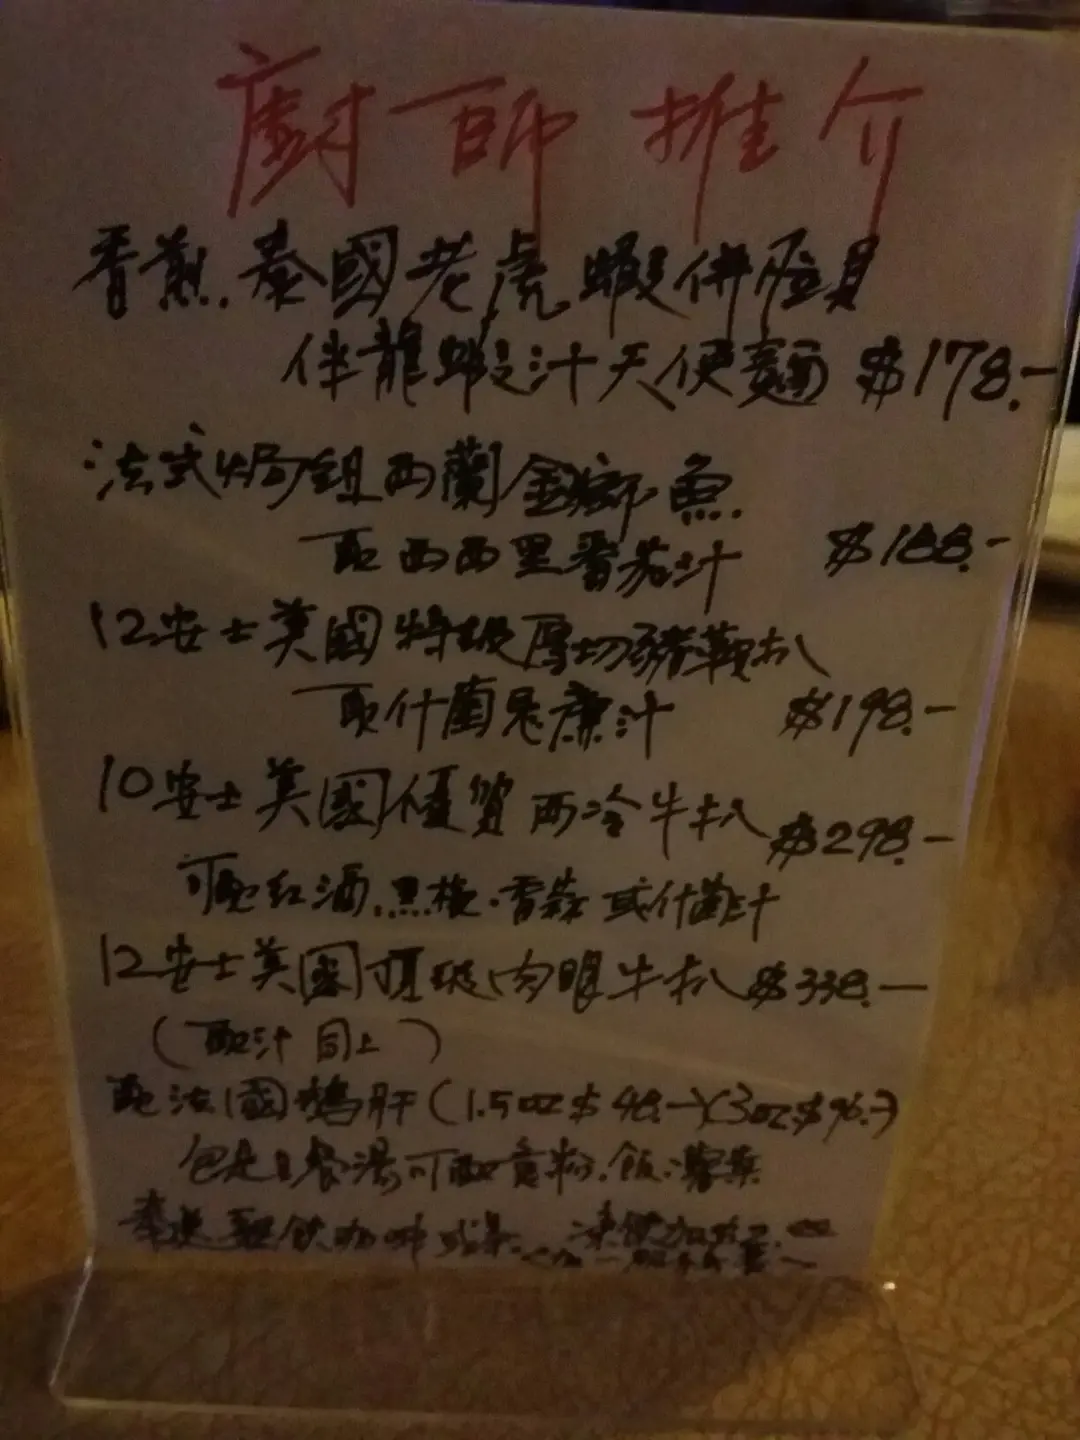 廚師推介
香煎泰國老虎蝦併帶
伴龍蝦汁天使麵 $178.-
法式焗紐西蘭金鯽魚
配西西里番茄汁 $188.-
12安士美國特級厚切豬鞍扒
配什菌忌廉汁 $198.-
10安士美國優質西冷牛扒 $298.-
可配紅酒.黑椒.香蒜或什菌汁
12安士美國頂級肉眼牛扒 $338.-
(配汁同上)
配法國鵝肝(1.5oz $48.-)(3oz $96.-)
包是日餐湯可配意粉.飯.薯菜
奉送熱飲咖啡或茶 凍飲加